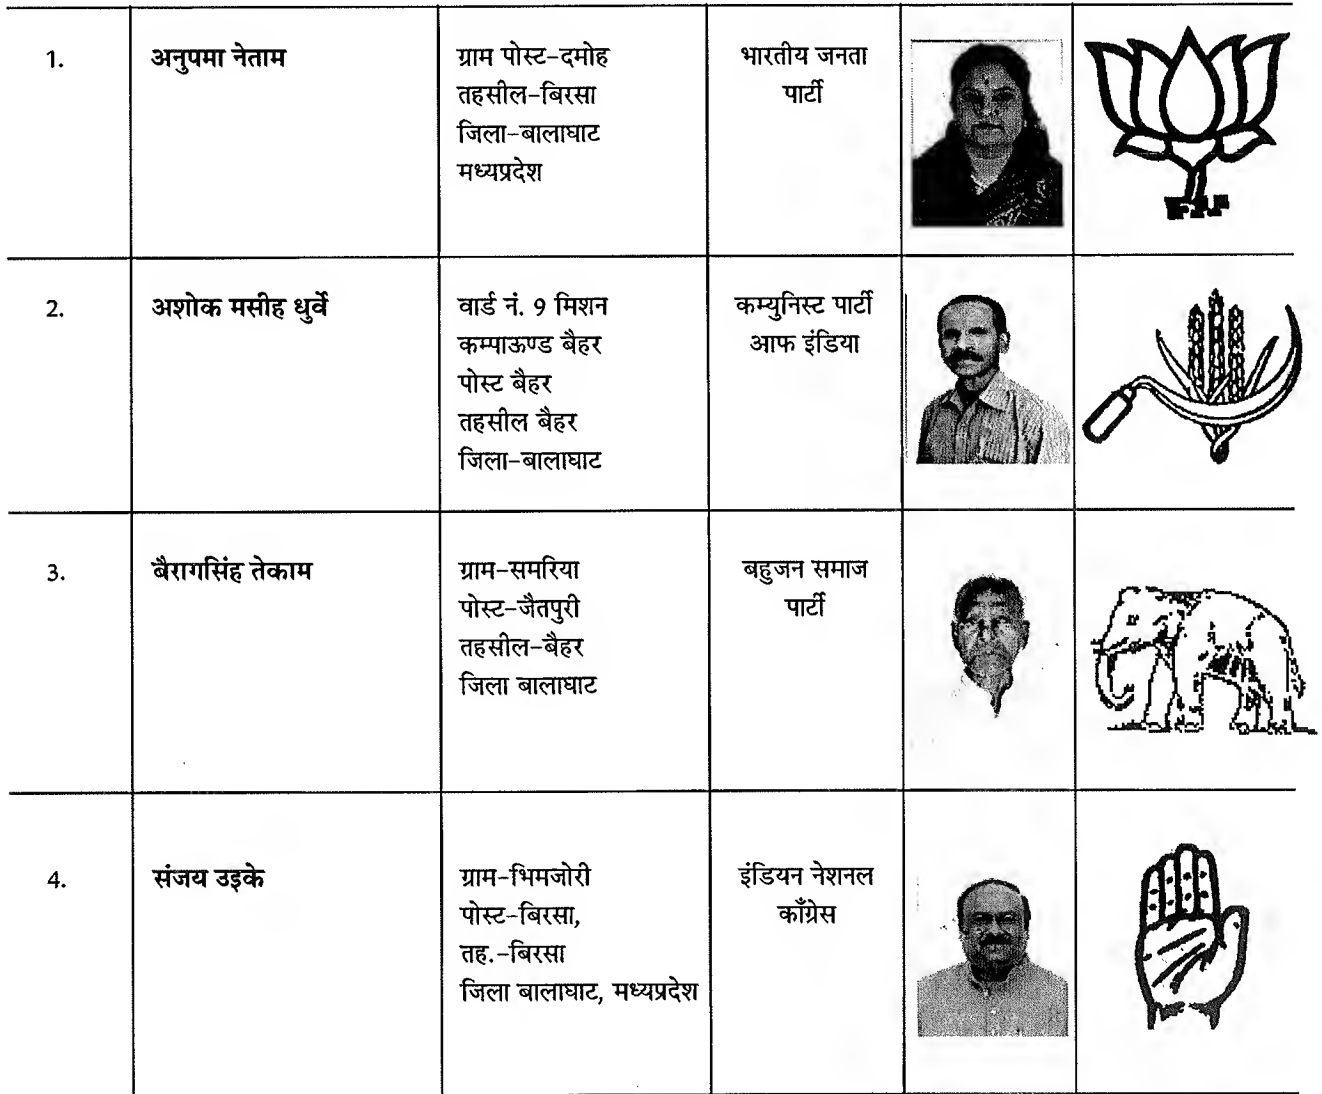 1.
अनुपमा नेताम
ग्राम पोस्ट-दमोह
तहसील-बिरसा
जिला-बालाघाट
मध्यप्रदेश
भारतीय जनता
पार्टी
2.
अशोक मसीह धुर्वे
वार्ड नं. 9 मिशन
कम्पाऊण्ड बैहर
पोस्ट बैहर
तहसील बैहर
जिला-बालाघाट
कम्युनिस्ट पार्टी
आफ इंडिया
3.
बैरागसिंह तेकाम
ग्राम-समरिया
पोस्ट-जैतपुरी
तहसील-बैहर
जिला बालाघाट
बहुजन समाज
पार्टी
4.
संजय उइके
ग्राम-भिमजोरी
पोस्ट-बिरसा,
तह.-बिरसा
जिला बालाघाट, मध्यप्रदेश
इंडियन नेशनल
काँग्रेस